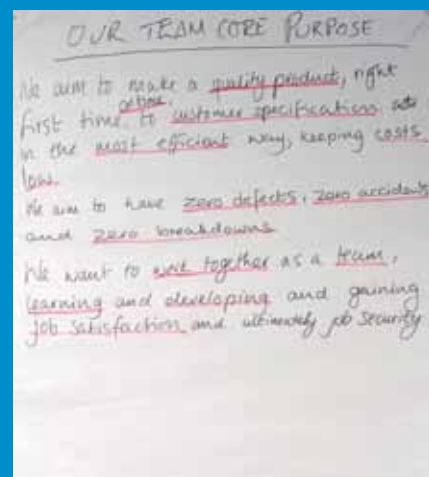 OUR TEAM CORE PURPOSE
We aim to make a quality product, right
on time,
first time, to customer specification
in the most efficient way, keeping costs
low.
We aim to have zero defects, zero accidents
and zero breakdowns
We want to work together as a team,
learning and developing and gaining
job satisfaction and ultimately job security